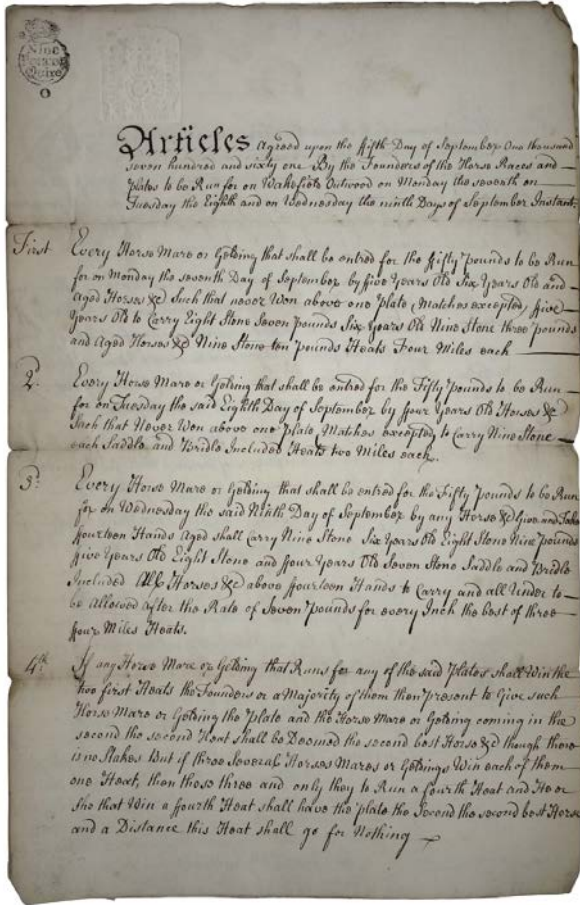 Nine
Quire
Articles Agreed upon the fifth Day of September One thousand
seven hundred and sixty one By the Founders of the Horse Races and
Plates to be Run for on Wakefield Outwood on Monday the seventh on
Tuesday the Eighth and on Wednesday the ninth Days of September Instant
First Every Horse Mare or Gelding that shall be entred for the fifty pounds to be Run
for on Monday the seventh Day of September by five Years Old Six Years Old and
Aged Horses &c Such that never Won above one Plate, Matches excepted, five
Years Old to Carry Eight Stone Seven pounds Six Years Old Nine Stone three pounds
and Aged Horses &c Nine Stone ten pounds Heats Four Miles each
2d. Every Horse Mare or Gelding that shall be entred for the Fifty pounds to be Run
for on Tuesday the said Eighth Day of September by four Years Old Horses &c
Such that Never Won above one Plate, Matches excepted to Carry Nine Stone
each Saddle and Bridle Included Heats two Miles each.
3d. Every Horse Mare or Gelding that shall be entred for the Fifty pounds to be Run
for on Wednesday the said Ninth Day of September by any Horse &c Give and Take
fourteen Hands Aged shall Carry Nine Stone Six Years Old Eight Stone Nine pounds
five Years Old Eight Stone and four Years Old Seven Stone Saddle and Bridle
Included All Horses &c above fourteen Hands to Carry and all Under to
be Allowed after the Rate of Seven pounds for every Inch the best of three
four Miles Heats.
4th. If any Horse Mare or Gelding that Runs for any of the said Plates shall Win the
two first Heats the Founders or a Majority of them then present to Give such
Horse Mare or Gelding the Plate and the Horse Mare or Gelding coming in the
second the second Heat shall be Deemed the second best Horse &c though there
is no Stakes But if three Several Horses Mares or Geldings Win each of them
one Heat, then those three and only they to Run a fourth Heat and He or
She that Win a fourth Heat shall have the plate the Second the second best Horse
and a Distance this Heat shall go for Nothing